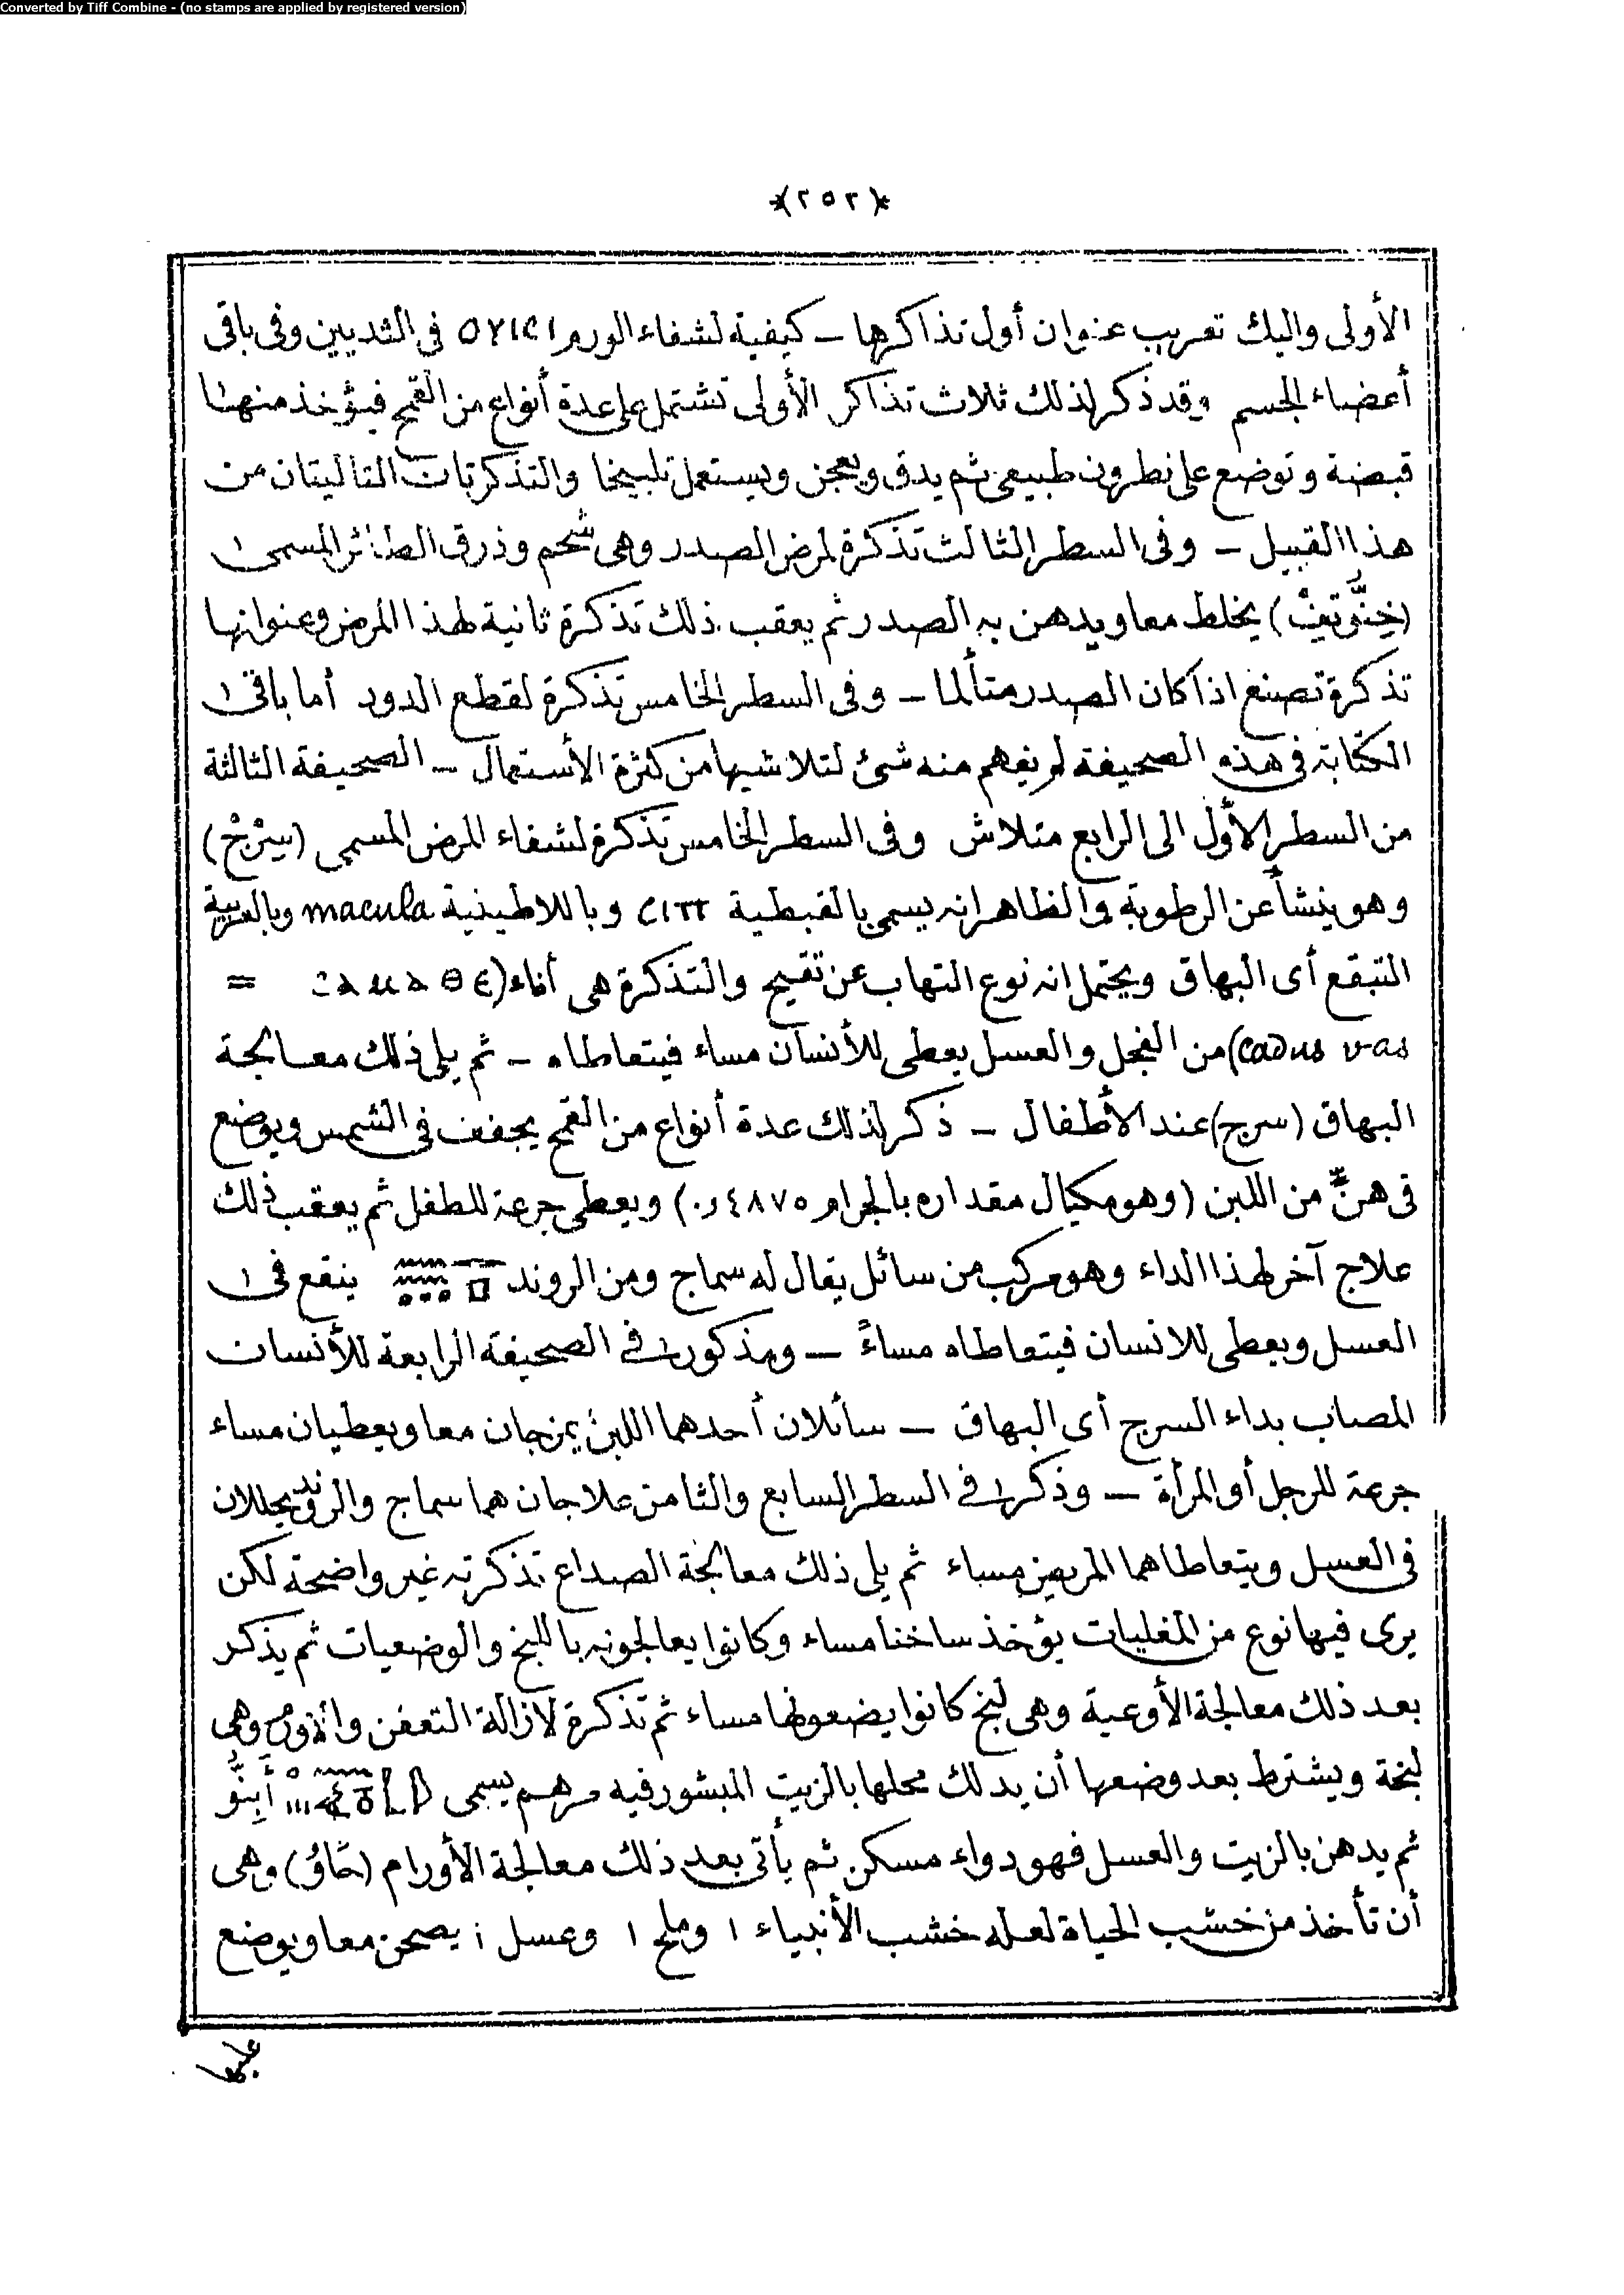 Converted by Tiff Combine - (no stamps are applied by registered version)
*(٢٥٢)*
الأولى واليك تعريب عنوان أول تذاكرها – كيفية لشفاء الورم في الثديين وفى باقى
أعضاء الجسم وقد ذكر لذلك ثلاث تذاكر الأولى تشتمل على عدة أنواع من القمح فيؤخذ منها
قبضة وتوضع على نطرون طبيعى ثم يدق ويعجن ويستعمل تلبيخا والتذكرتان التاليتان من
هذا القبيل – وفى السطر الثالث تذكرة لمرض الصدر وهى شحم وذرق الطائر المسمى
(خِنُّوتِفْ) يخلط معا ويدهن به الصدر ثم يعقب ذلك تذكرة ثانية لهذا المرض وعنوانها
تذكرة تصنع اذا كان الصدر متألما – وفى السطر الخامس تذكرة لقطع الدود أما باقى
الكتابة فى هذه الصحيفة لم يفهم منه شئ لتلاشيها من كثرة الأستعمال – الصحيفة الثالثة
من السطر الأول الى الرابع متلاش وفى السطر الخامس تذكرة لشفاء المرض المسمى (سِرْجْ)
وهو ينشأ عن الرطوبة والظاهر انه يسمى بالقبطية وباللاطينية macula وبالعربية
التبقع أى البهاق ويحتمل انه نوع التهاب عن تقيح والتذكرة هى أناء ( =
cadus vas) من الفجل والعسل يعطى للأنسان مساء فيتعاطاه – ثم يلى ذلك معالجة
البهاق (سرج) عند الأطفال – ذكر لذلك عدة أنواع من القمح يجفف فى الشمس ويوضع
فى هنّ من اللبن (وهو مكيال مقداره بالجرام ٤٨٧٥ر٠) ويعطى جرعة للطفل ثم يعقب ذلك
علاج آخر لهذا الداء وهو مركب من سائل يقال له سماج ومن الروند ينقع فى
العسل ويعطى للانسان فيتعاطاه مساءً – ومذكور فى الصحيفة الرابعة للأنسان
المصاب بداء السرج أى البهاق – سائلان أحدهما اللبن يمزجان معا ويعطيان مساء
جرعة للرجل أو المرأة – وذكر فى السطر السابع والثامن علاجان هما سماج والروند يحللان
فى العسل ويتعاطاهما المريض مساء ثم يلى ذلك معالجة الصداع تذكرته غير واضحة لكن
يرى فيها نوع من المغليات يؤخذ ساخنا مساء وكانوا يعالجونه باللبخ والوضعيات ثم يذكر
بعد ذلك معالجة الأوعية وهى لبخ كانوا يضعونها مساء ثم تذكرة لازالة التعفن وهى
لبخة ويشترط بعد وضعها أن يدلك محلها بالزيت المبشور فيه مرهم يسمى أَبِنُّو
ثم يدهن بالزيت والعسل فهو دواء مسكن ثم يأتى بعد ذلك معالجة الأورام وهى
أن تأخذ من خشب الحياة لعله خشب الأنبياء ١ وملح ١ وعسل ١ يصحن معا ويوضع
عليها